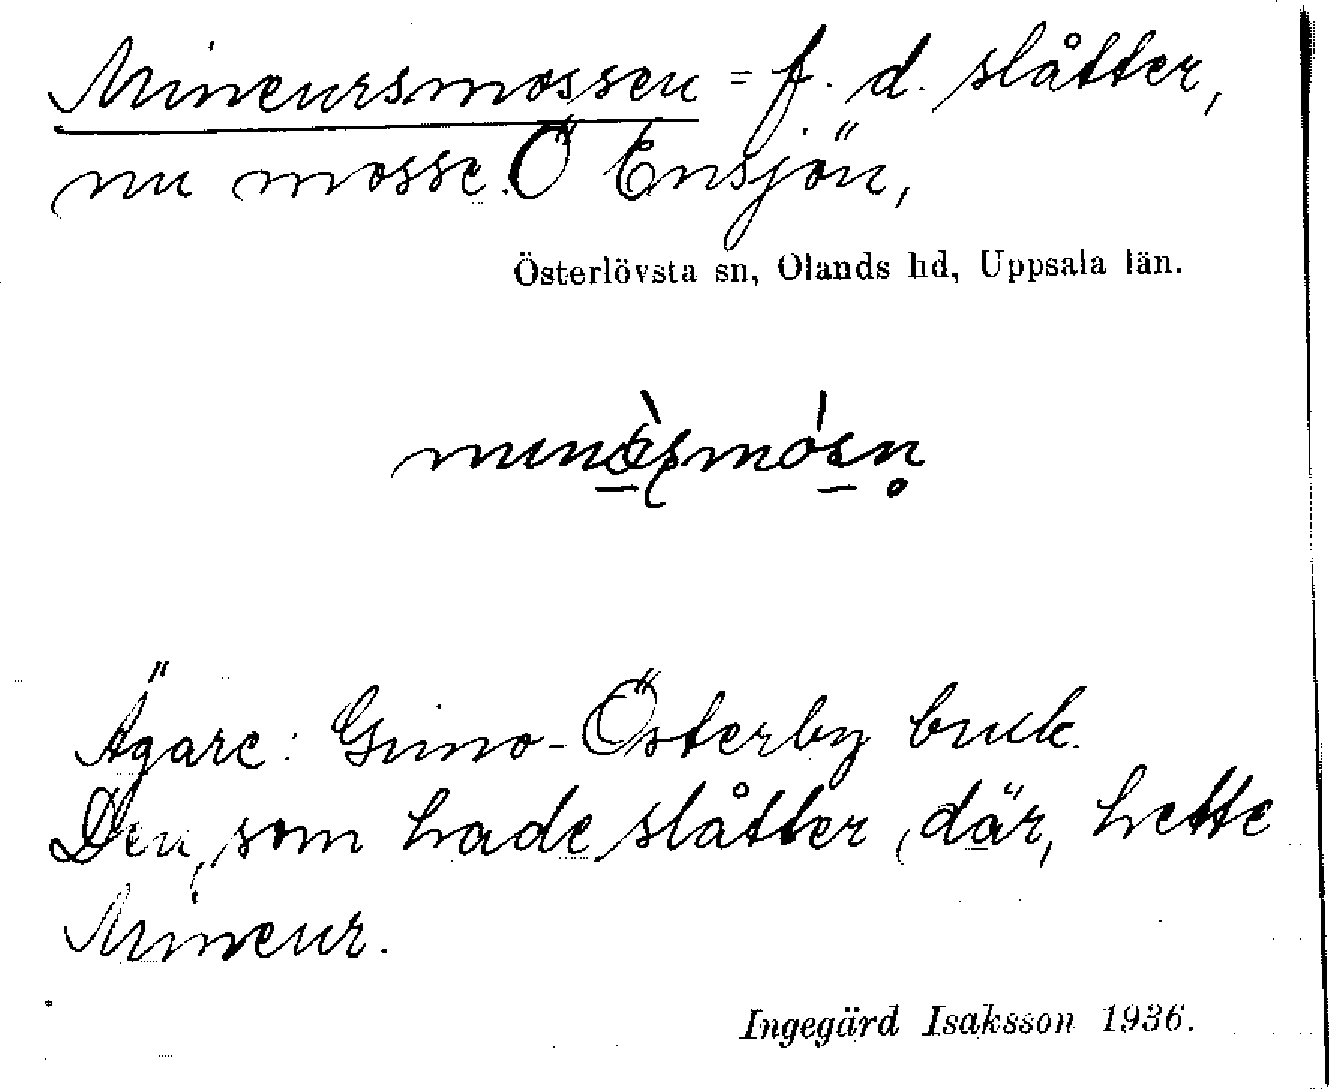 Mineursmossen = f. d. slåtter,
nu mosse. Ö Ensjön,
Österlövsta sn, Olands hd, Uppsala län.
Ägare: Gimo-Österby bruk.
Den, som hade slåtter där, hette
Mineur.
Ingegärd Isaksson 1936.